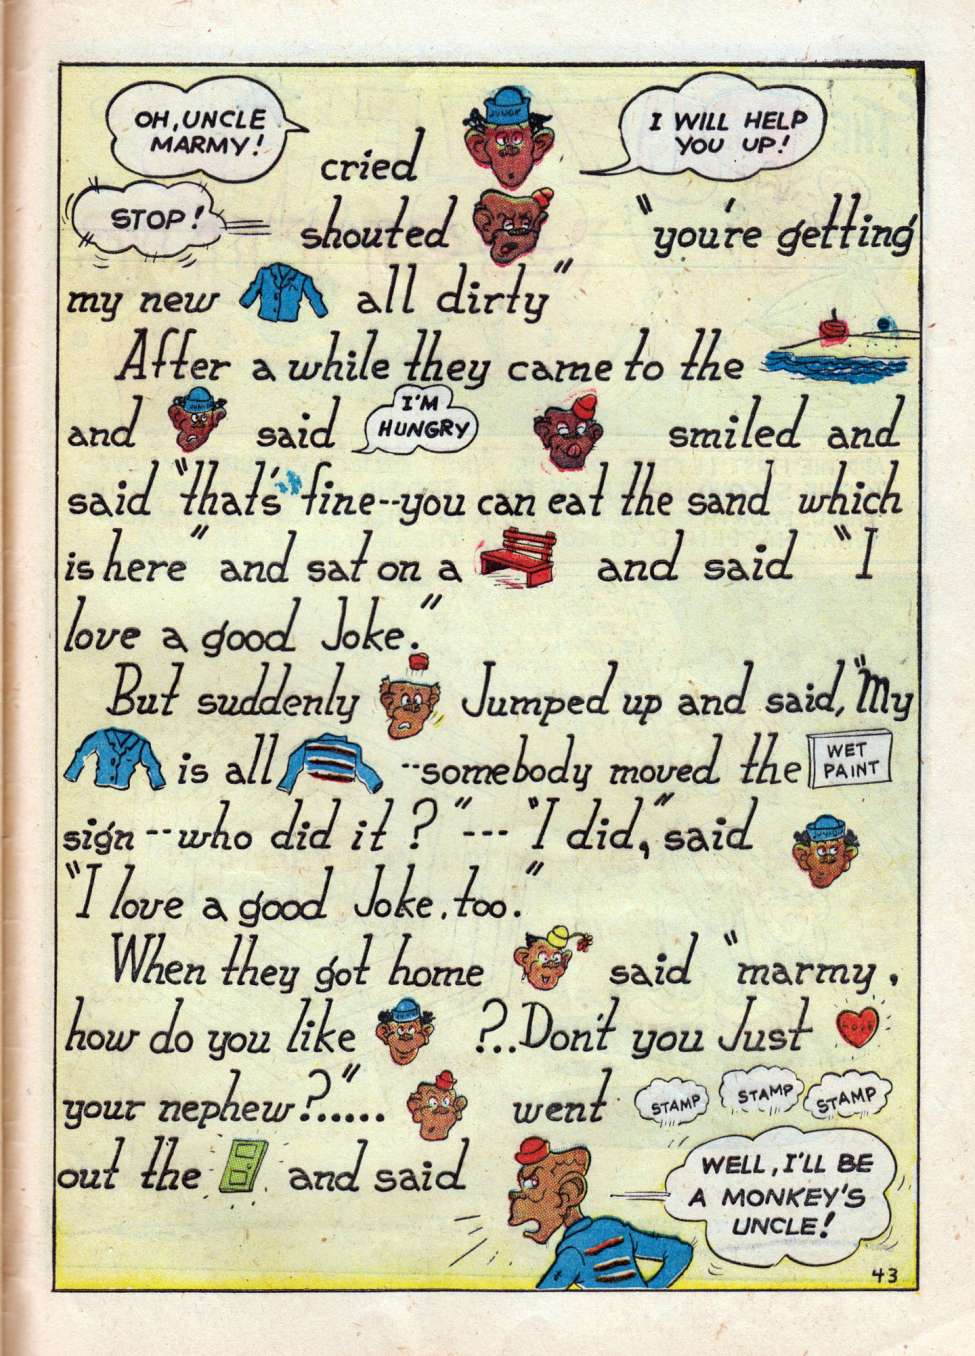 OH, UNCLE MARMY! cried JUNGK I WILL HELP YOU UP!
STOP! shouted "you're getting
my new all dirty"
After a while they came to the
and said I'M HUNGRY smiled and
said "that's fine--you can eat the sand which
is here" and sat on a and said "I
love a good Joke."
But suddenly Jumped up and said, "My
is all --somebody moved the WET PAINT
sign--who did it?"--- "I did," said
"I love a good Joke, too."
When they got home said "marmy,
how do you like ?..Don't you Just LOVE
your nephew?"..... went STAMP STAMP STAMP
out the and said WELL, I'LL BE
A MONKEY'S
UNCLE!
43